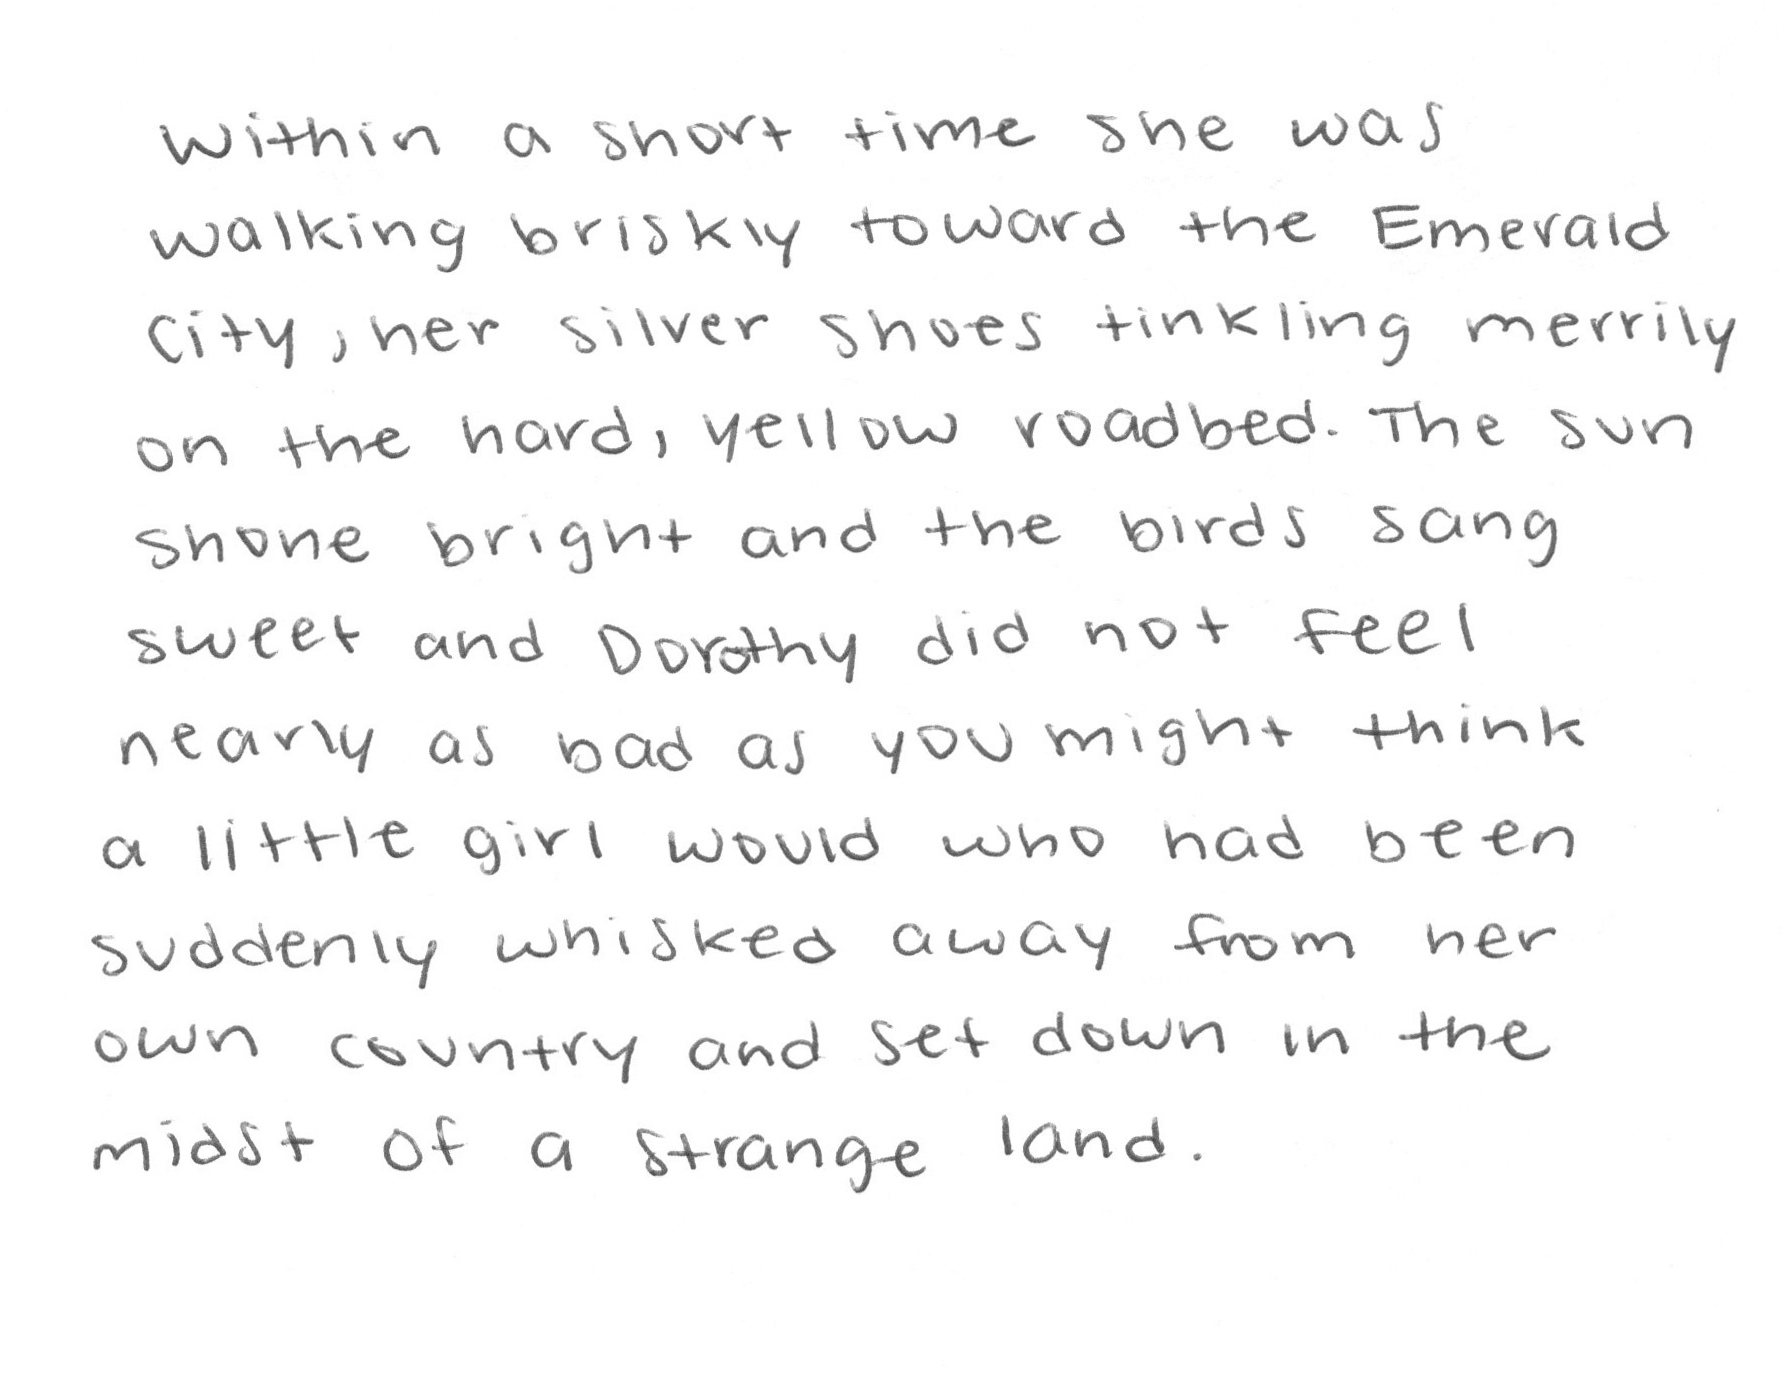 Within a short time she was
walking briskly toward the Emerald
City, her silver shoes tinkling merrily
on the hard, yellow roadbed. The sun
shone bright and the birds sang
sweet and Dorothy did not feel
nearly as bad as you might think
a little girl would who had been
suddenly whisked away from her
own country and set down in the
midst of a strange land.